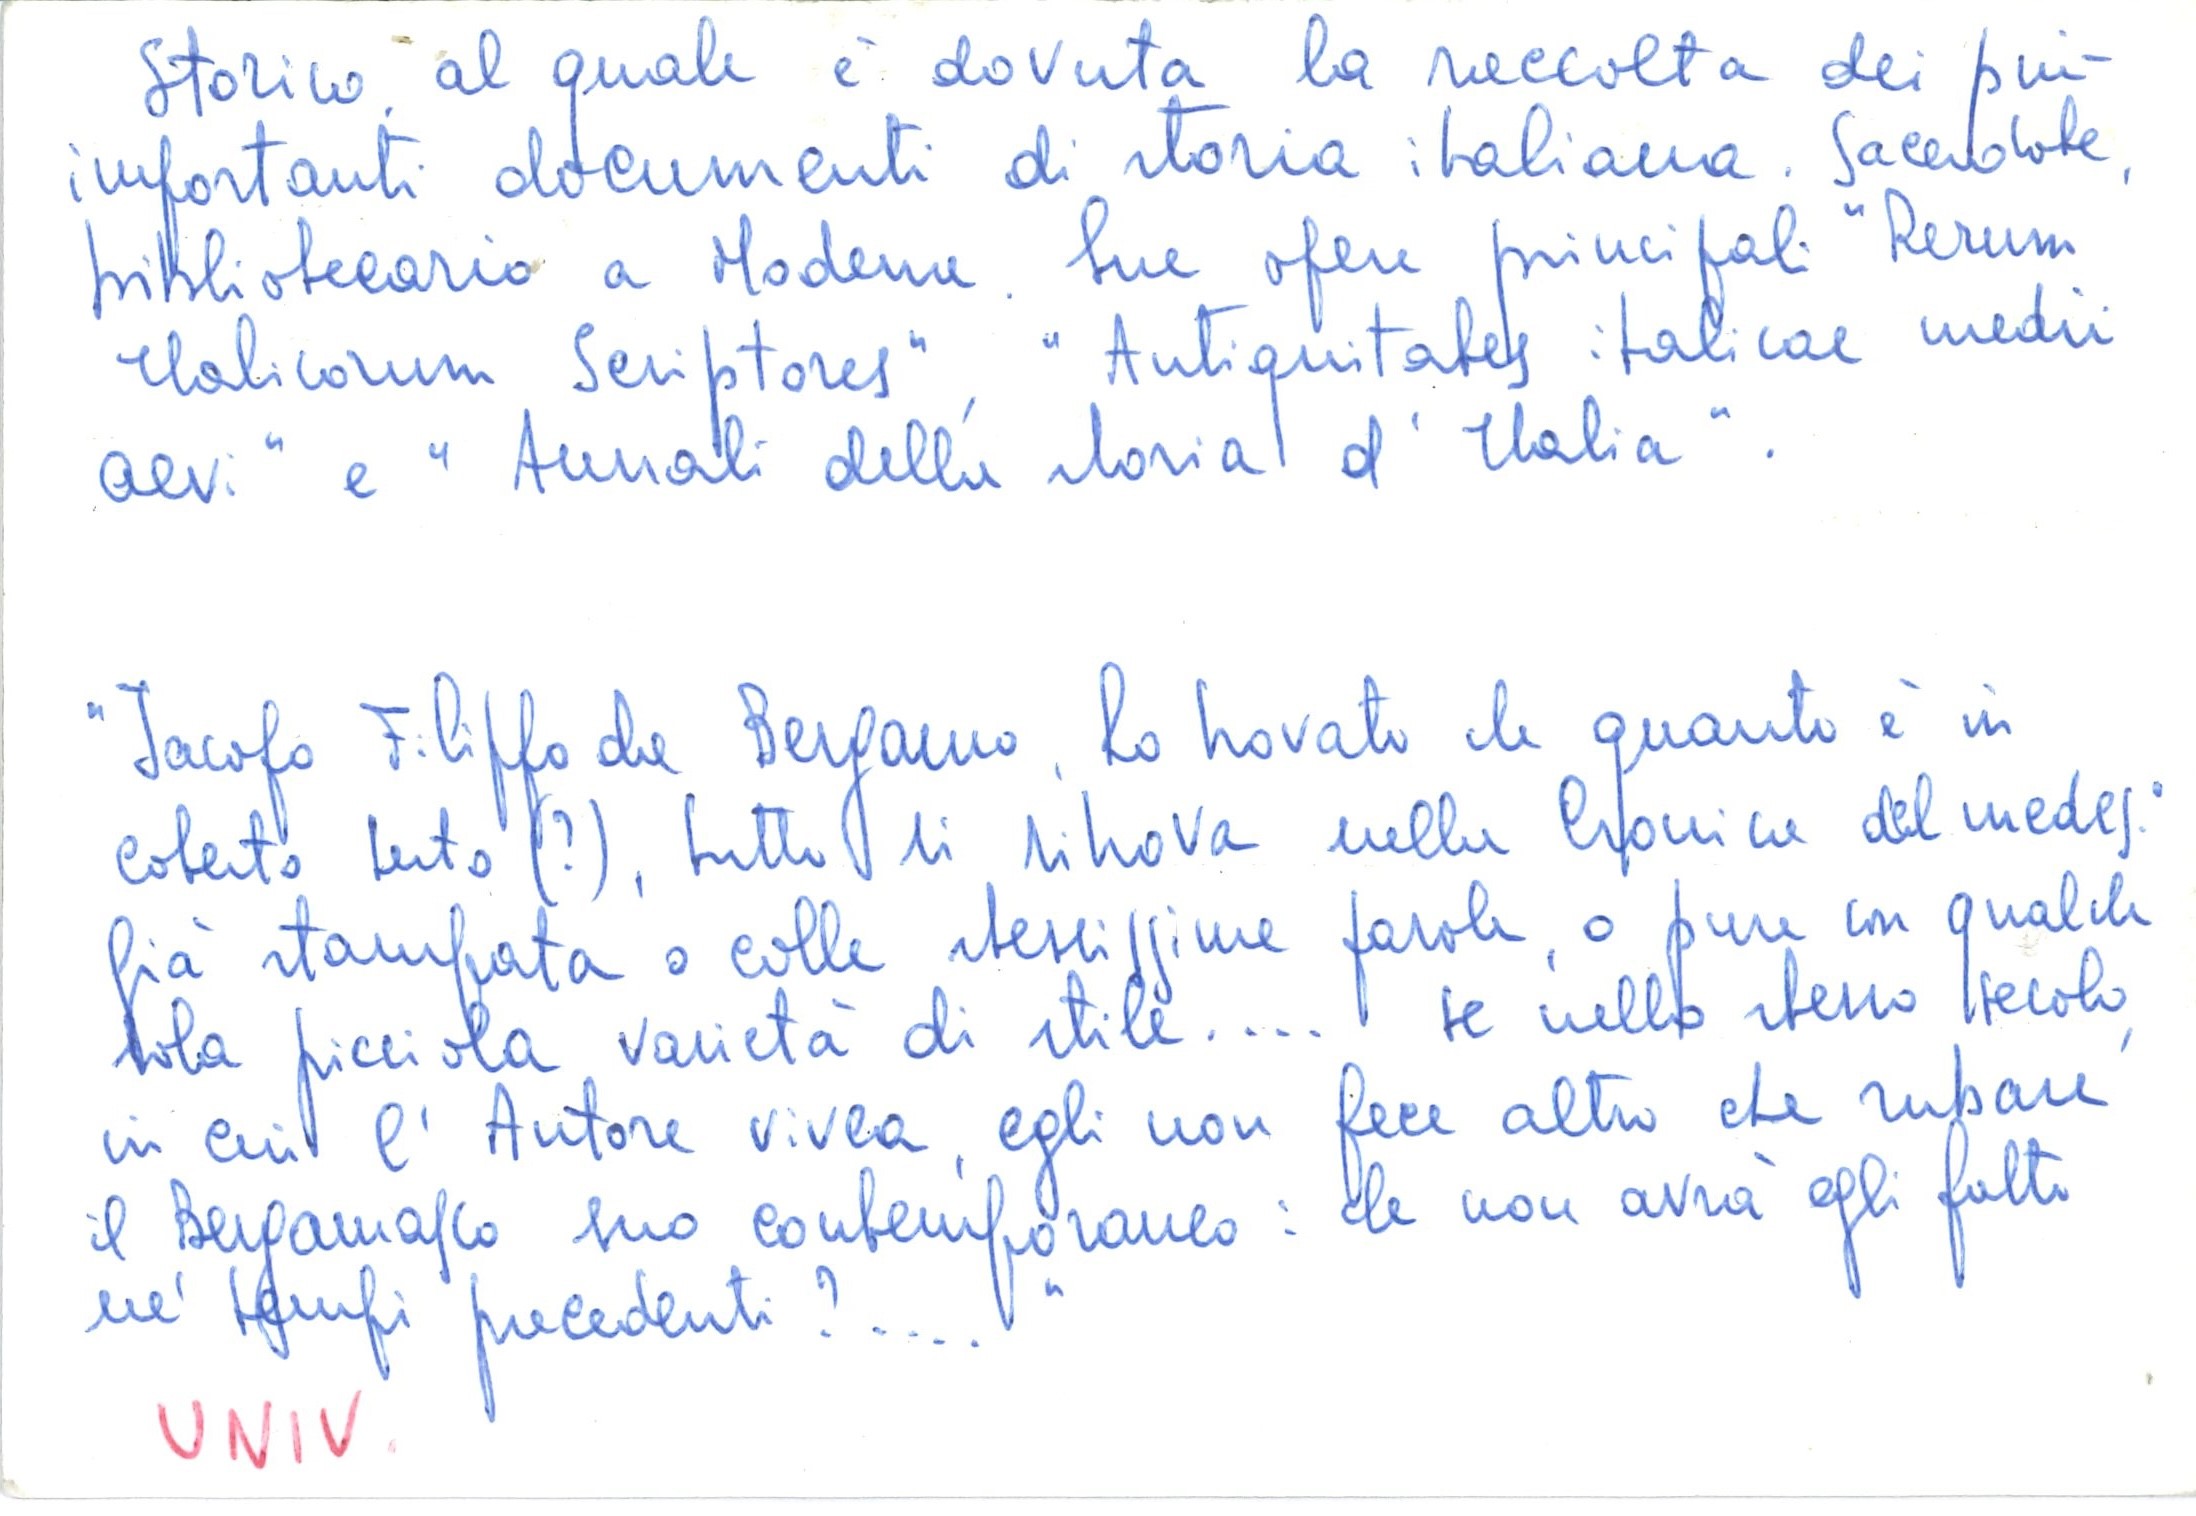 Storico, al quale è dovuta la raccolta dei più
importanti documenti di storia italiana. Sacerdote,
bibliotecario a Modena. Sue opere principali "Rerum
Italicorum Scriptores", "Antiquitates italicae medii
aevi" e "Annali della storia d'Italia".
"Jacopo Filippo da Bergamo, ho trovato che quanto è in
cotesto testo (?), tutto si ritrova nella Cronica del medes.º
già stampata o colle stessissime parole, o pure con qualche
sola picciola varietà di stile.... se nello stesso secolo,
in cui l'Autore vivea, egli non fece altro che rubare
il Bergamasco suo contemporaneo: che non avrà egli fatto
ne' tempi precedenti?...."
UNIV.